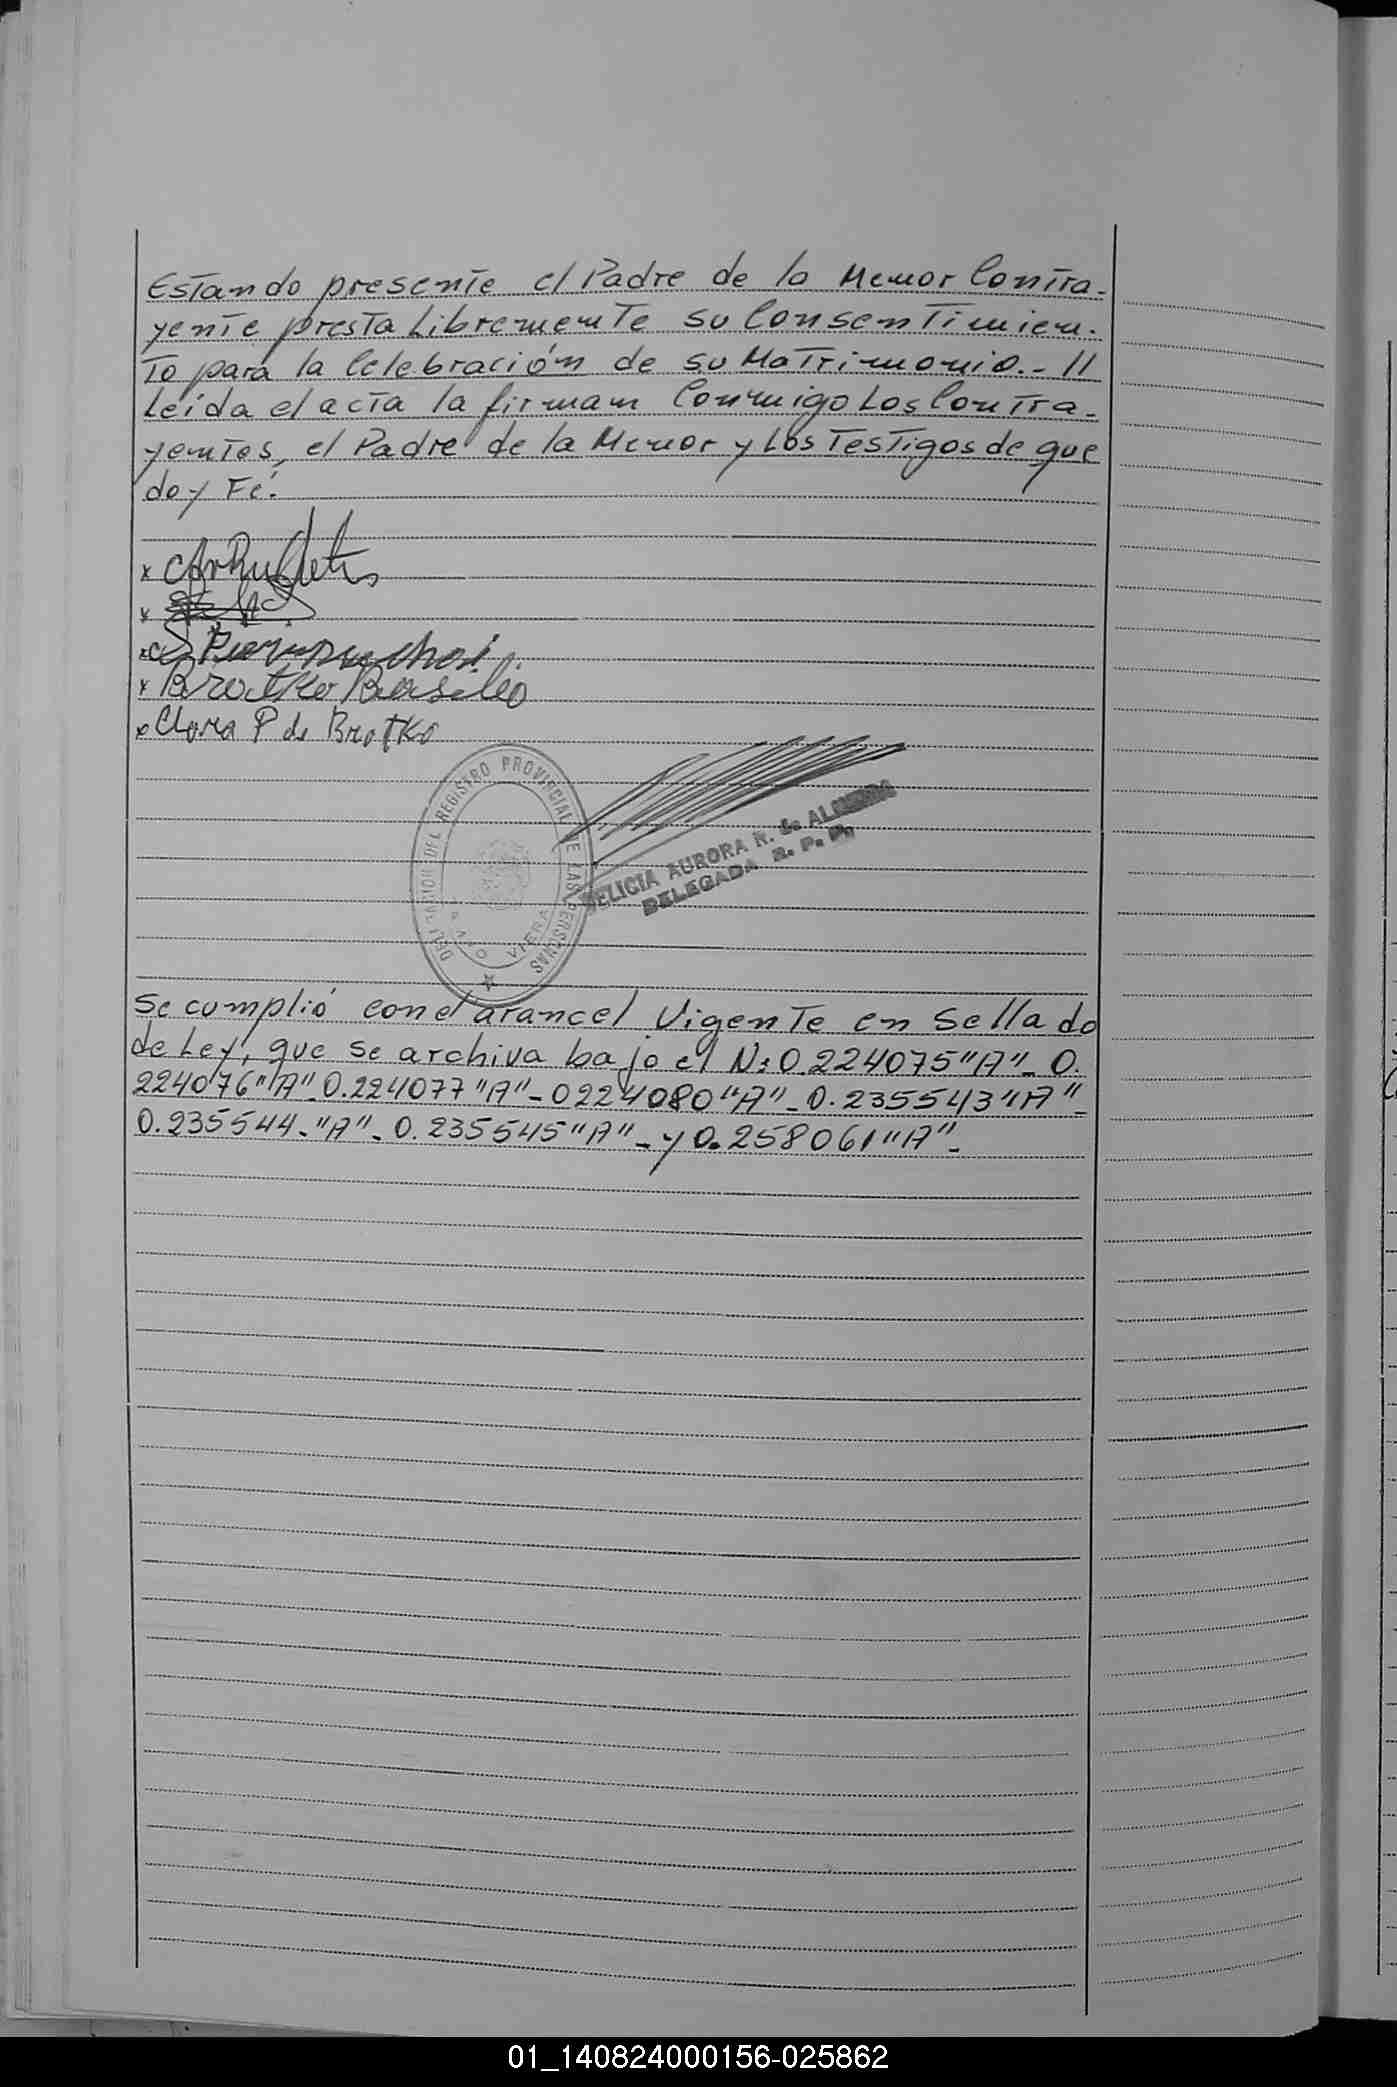 Estando presente el Padre de la Menor Contra-
yente presta Libremente su Consentimien-
to para la Celebración de su Matrimonio.- //
Leída el acta la firman Conmigo Los Contra-
yentes, el Padre de la Menor y Los Testigos de que
doy Fé.
x
x
x
x Brotko Basilio
x Clara P de Brotko
DELEGACION DEL REGISTRO PROVINCIAL DE LAS PERSONAS
VIERA
DELICIA AURORA R. de ALMEIDA
DELEGADA R. P. P.
Se cumplió con el arancel Vigente en Sellado
de Ley, que se archiva bajo el N: 0.224075 "A" - 0.
224076 "A" - 0.224077 "A" - 0224080 "A" - 0.235543 "A" -
0.235544. "A" - 0.235545 "A" - y 0.258061 "A" -
01_140824000156-025862